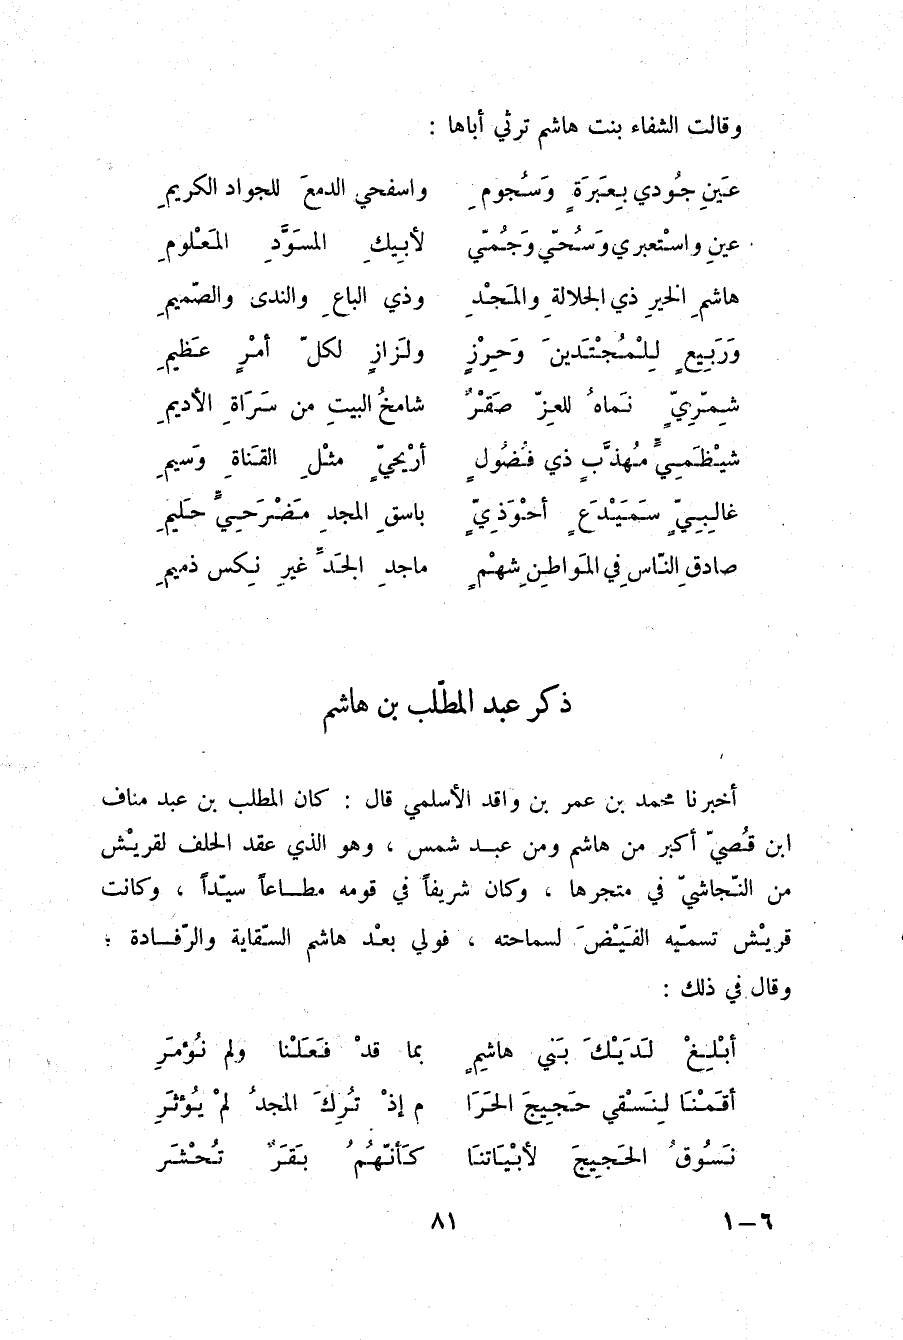 وقالت الشفاء بنت هاشم ترثي أباها :
عَينِ جُودي بعَبرَةٍ وَسُجومِ واسفحي الدمعَ للجواد الكريمِ
عينِ واسْتعبري وَسُحّي وَجُمّي لأبِيكِ المسَوَّدِ المَعْلومِ
هاشمِ الخيرِ ذي الجلالةِ والمَجْدِ وذي الباعِ والندى والصّميمِ
وَرَبِيعٍ لِلْمُجْتَدينَ وَحِرْزٍ ولَزازٍ لكلّ أمْرٍ عَظيمِ
شِمّرِيٍّ نَماهُ للعِزّ صَقْرٌ شامخُ البيتِ من سَرَاةِ الأديمِ
شيْظَمِيٍّ مُهذَّبٍ ذي فُضُولٍ أرْيحيٍّ مثْلِ القَناةِ وَسيمِ
غالِبِيٍّ سَمَيْدَعٍ أحْوَذِيٍّ باسقِ المجدِ مَضْرَحِيٍّ حَليمِ
صادقِ النّاسِ في المَواطِنِ شهْمٍ ماجدِ الجَدِّ غيرِ نِكسٍ ذميمِ
ذكر عبد المطّلب بن هاشم
أخبرنا محمد بن عمر بن واقد الأسلمي قال : كان المطلب بن عبد مناف
ابن قُصيّ أكبر من هاشم ومن عبد شمس ، وهو الذي عقد الحلف لقريْش
من النّجاشيّ في متجرها ، وكان شريفاً في قومه مطاعاً سيّداً ، وكانت
قريْش تسمّيه الفَيْضَ لسماحته ، فولي بعْد هاشم السّقاية والرّفادة ؛
وقال في ذلك :
أبْلِغْ لَدَيْكَ بَني هاشِمٍ بما قدْ فَعَلْنا ولم نُؤمَرِ
أقَمْنَا لِنَسْقي حَجيجَ الحَرَا م إذْ تُرِكَ المجدُ لمْ يُؤثَرِ
نَسُوقُ الحَجيجَ لأبْيَاتنَا كَأنّهُمُ بَقَرٌ تُحْشَرِ
٦–١
٨١